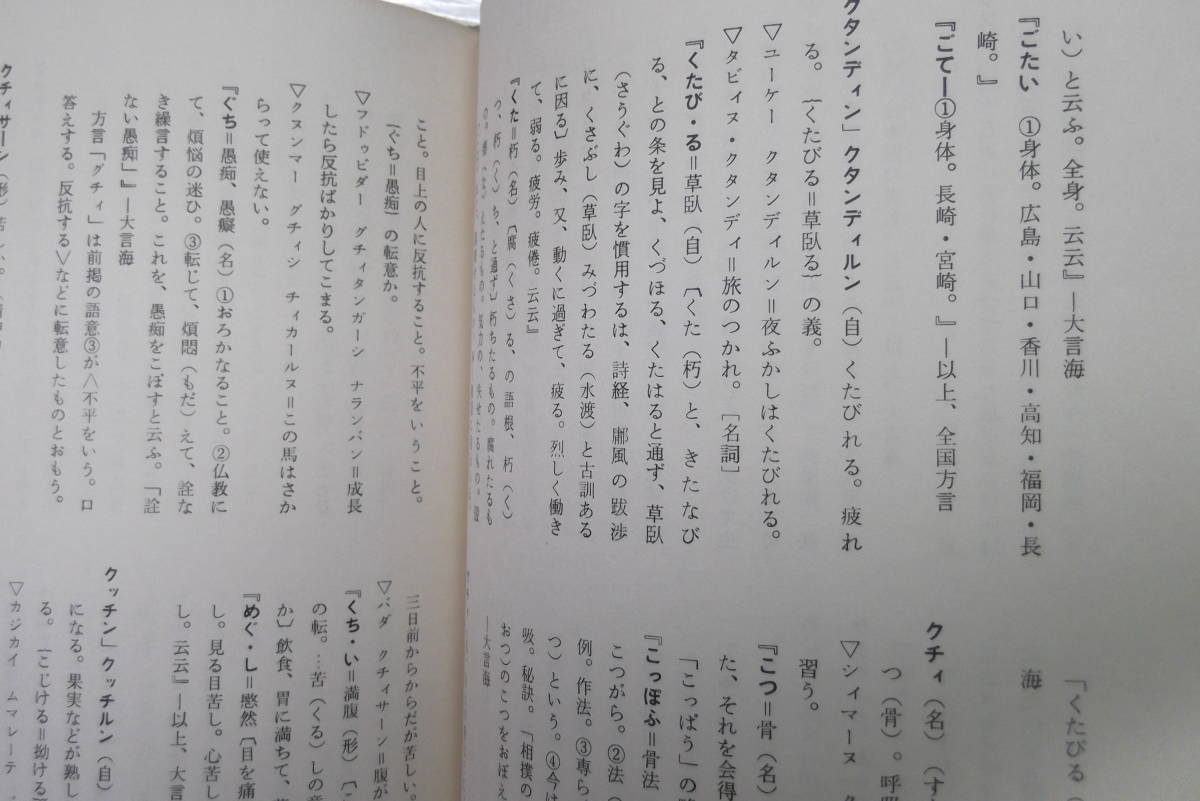 い）と云ふ。全身。云云』―大言海
『ごたい　①身体。広島・山口・香川・高知・福岡・長
崎。』
『ごてー①身体。長崎・宮崎。』―以上、全国方言
クタンディン」クタンディルン（自）くたびれる。疲れ
る。｛くたびる＝草臥る｝の義。
▽ユーケー　クタンディルン＝夜ふかしはくたびれる。
▽タビィヌ・クタンディ＝旅のつかれ。［名詞］
『くたび・る＝草臥（自）〔くた（朽）と、きたなび
る、との条を見よ、くづほる、くたはると通ず、草臥
（さうぐわ）の字を慣用するは、詩経、鄘風の跋渉
に、くさぶし（草臥）みづわたる（水渡）と古訓ある
に因る〕歩み、又、動くに過ぎて、疲る。烈しく働き
て、弱る。疲労。疲倦。云云』
『くた＝朽（名）〔腐（くさ）る、の語根、朽（く）
つ、朽（く）ち、と通ず〕朽ちたるもの。腐れたるも
「くたびる（
海
クチィ（名）（す
つ（骨）。呼
▽シィマーヌ　ク
習う。
『こつ＝骨（名）
た、それを会得
「こっぱう」の
『こっぽふ＝骨法
こつがら。②法（
例。作法。③専ら
つ）という。④今は
吸。秘訣。「相撲の
おつ）のこつをおぼえ
―大言海
こと。目上の人に反抗すること。不平をいうこと。
｛ぐち＝愚痴｝の転意か。
▽フドゥビダー　グチィタンガーシ　ナランバン＝成長
したら反抗ばかりしてこまる。
▽クヌンマー　グチィシ　チィカールヌ＝この馬はさか
らって使えない。
『ぐち＝愚痴、愚癡（名）①おろかなること。②仏教に
て、煩悩の迷ひ。③転じて、煩悶（もだ）えて、詮な
き繰言すること。これを、愚痴をこぼすと云ふ。「詮
ない愚痴」』―大言海
方言「グチィ」は前掲の語意③が＜不平をいう。口
答えする。反抗する＞などに転意したものとおもう。
クチィサーン（形）苦しい。
三日前からからだが苦しい。
▽バダ　クチィサーン＝腹が
『くち・い＝満腹（形）〔こ
の転。…苦（くる）しの意
か〕飲食、胃に満ちて、
『めぐ・し＝愍然〔目を痛
し。見る目苦し。心苦し
し。云云』―以上、大言
クッチン」クッチルン（自）
になる。果実などが熟し
る。｛こじける＝拗ける
▽カジカイ　ムマレーテ